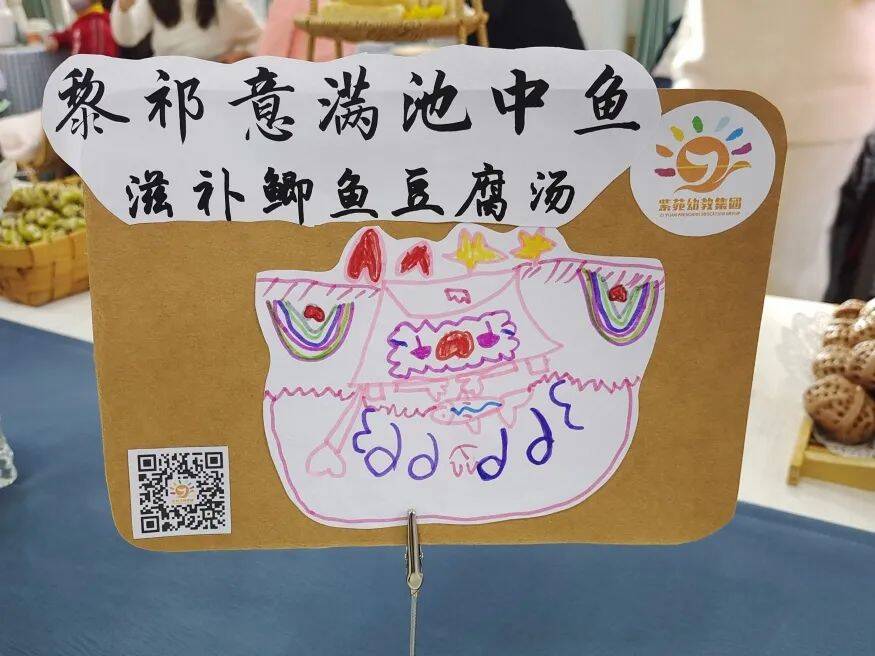 黎祁意满池中鱼
滋补鲫鱼豆腐汤
紫苑幼教集团
ZI YUAN PRESCHOOL EDUCATION GROUP